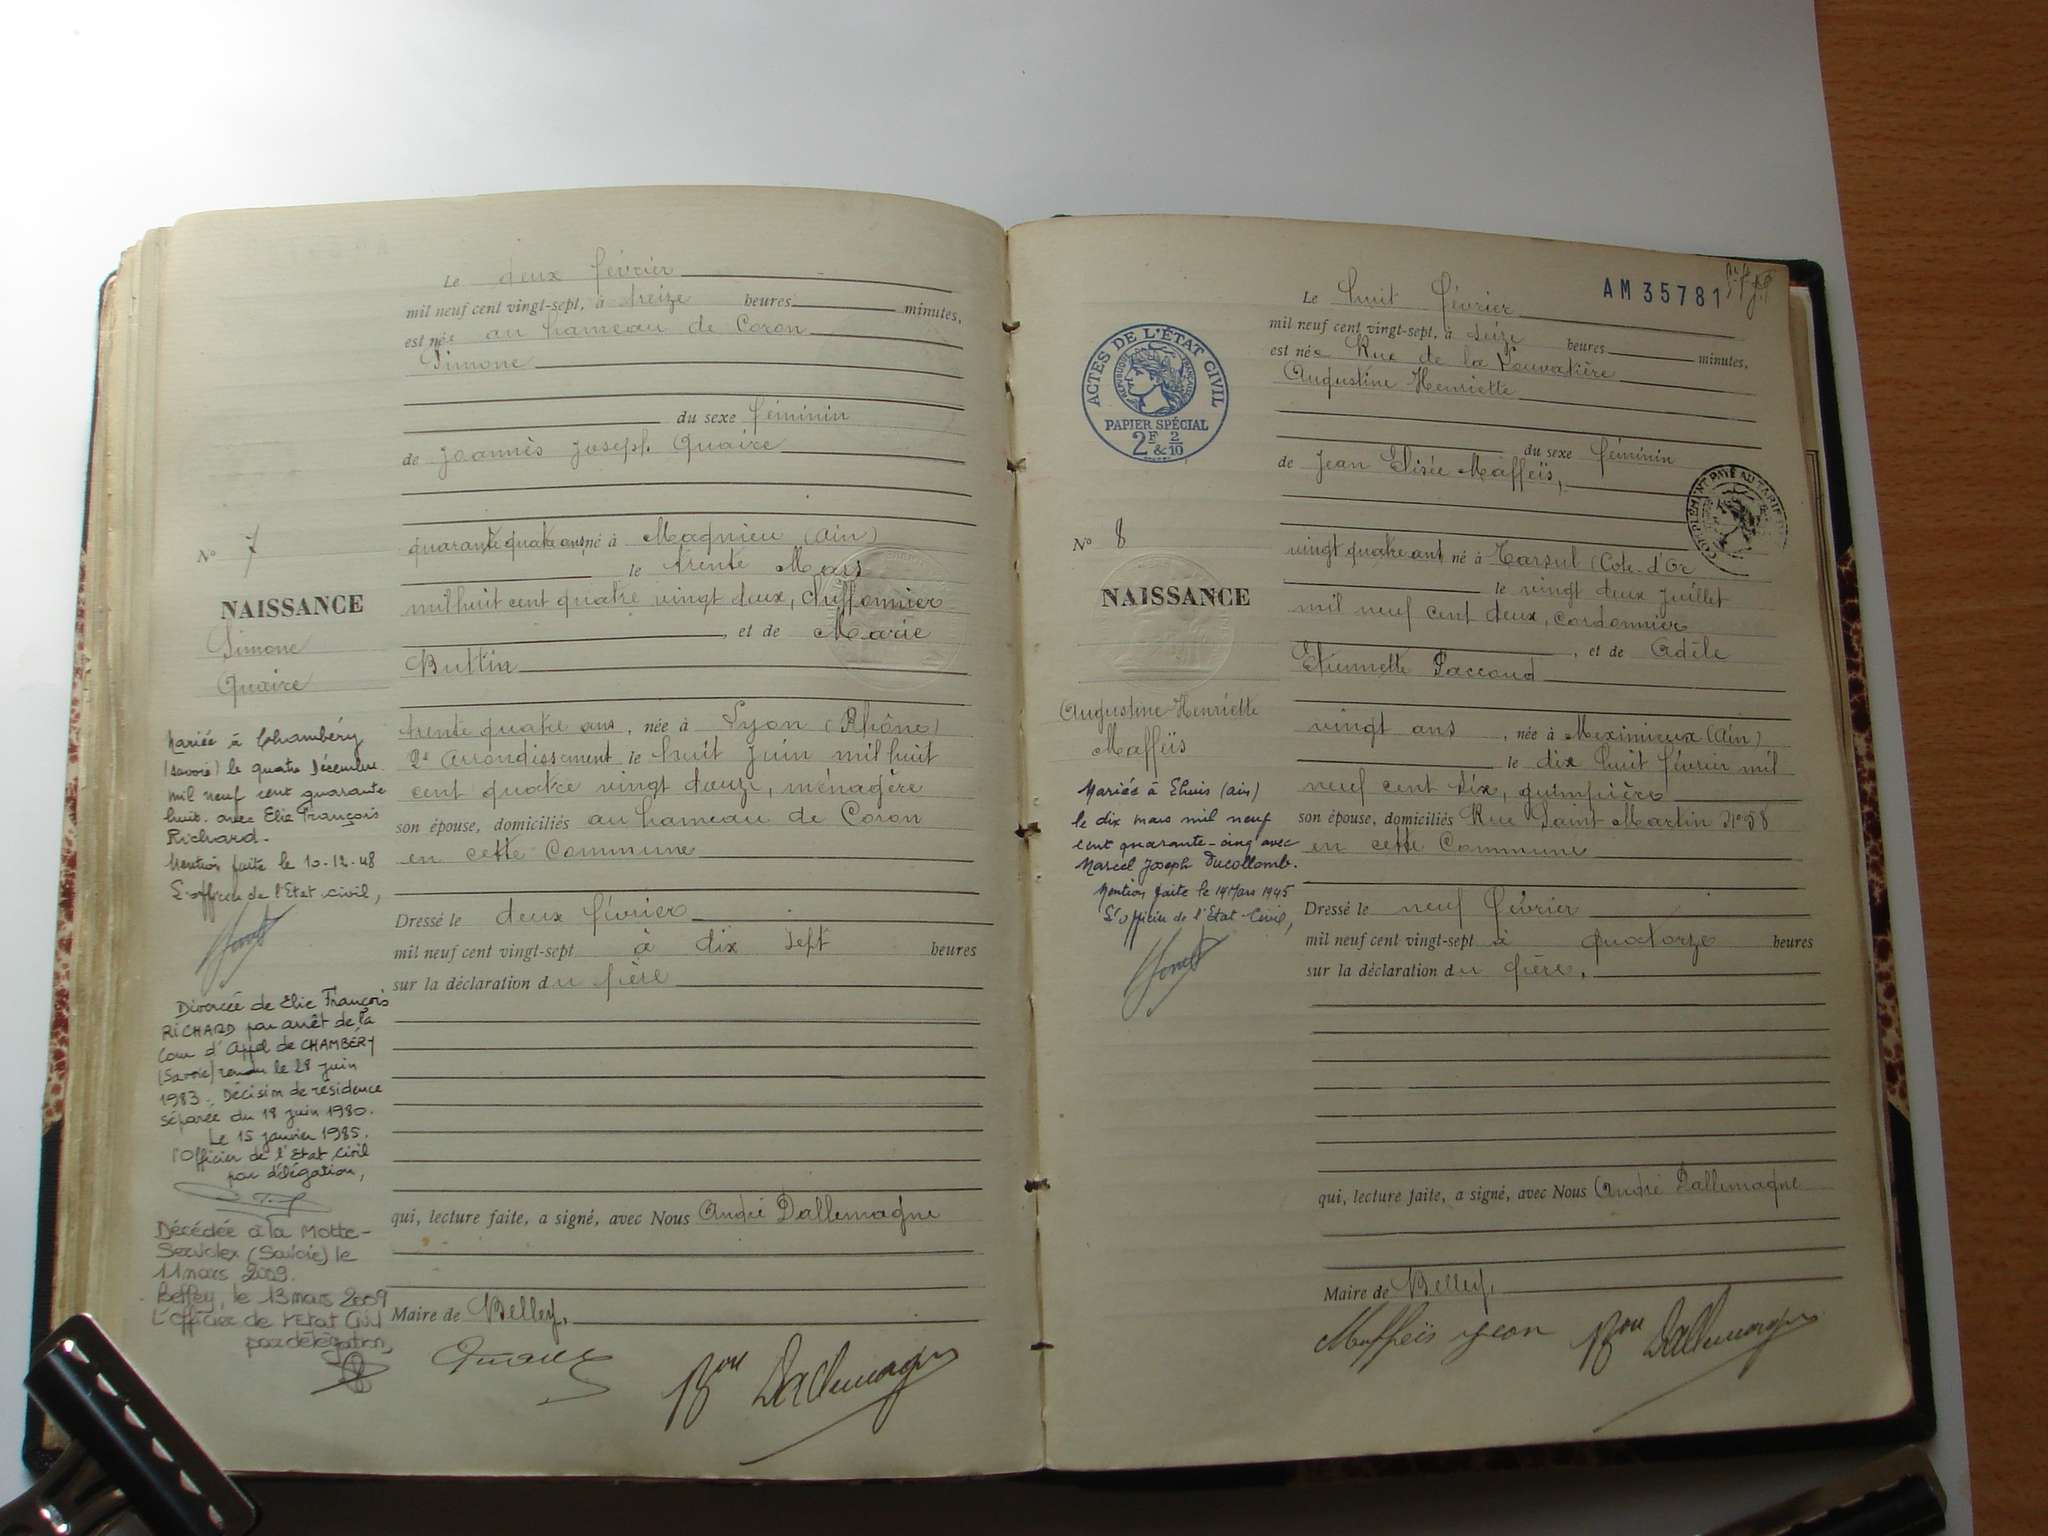 Le deux février
mil neuf cent vingt-sept, à treize heures minutes,
est née au hameau de Coron
Simone
du sexe féminin
de Joannès Joseph Quaire
quarante quatre ans, né à Magnieu (Ain)
le trente Mars
mil huit cent quatre vingt deux, chiffonnier
, et de Marie
Buttin
trente quatre ans, née à Lyon (Rhône)
2e Arrondissement le huit Juin mil huit
cent quatre vingt douze, ménagère
son épouse, domiciliés au hameau de Coron
en cette Commune
Dressé le deux février
mil neuf cent vingt-sept à dix sept heures
sur la déclaration du père
qui, lecture faite, a signé, avec Nous André Dallemagne
Maire de Belley,
Quaire
Bon Dallemagne
No 7
NAISSANCE
Simone
Quaire
Mariée à Chambéry
(Savoie) le quatre Décembre
mil neuf cent quarante
huit avec Elie François
Richard.
Mention faite le 10-12-48
L'officier de l'Etat civil,
Divorcée de Elie François
RICHARD par arrêt de la
Cour d'Appel de CHAMBÉRY
(Savoie) rendu le 28 juin
1983. Décision de résidence
séparée du 18 juin 1980.
Le 15 janvier 1985.
l'Officier de l'Etat civil
par délégation,
Décédée à la Motte-
Servolex (Savoie) le
11 mars 2009.
Belley, le 13 mars 2009
L'officier de l'Etat Civil
par délégation,
AM 35781
Le huit février
mil neuf cent vingt-sept, à seize heures minutes,
est née Rue de la Louvatière
Augustine Henriette
du sexe féminin
de Jean Elisée Maffeïs,
vingt quatre ans né à Tarsul (Cote-d'Or
le vingt deux Juillet
mil neuf cent deux, cordonnier
, et de Adèle
Etiennette Paccoud
vingt ans, née à Meximieux (Ain)
le dix huit février mil
neuf cent six, guimpière
son épouse, domiciliés Rue Saint Martin No 58
en cette Commune
Dressé le neuf Février
mil neuf cent vingt-sept à quatorze heures
sur la déclaration du père,
qui, lecture faite, a signé, avec Nous André Dallemagne
Maire de Belley,
Maffeïs Jean Bon Dallemagne
ACTES DE L'ÉTAT CIVIL
RÉPUBLIQUE FRANÇAISE
PAPIER SPÉCIAL
2F & 2/10
COMPLÉMENT PAYÉ AU TARIF
No 8
NAISSANCE
Augustine Henriette
Maffeïs
Mariée à (Ain)
le dix mars mil neuf
cent quarante-cinq avec
Marcel Joseph Ducollomb.
Mention faite le 14 Mars 1945
L'officier de l'Etat-Civil,